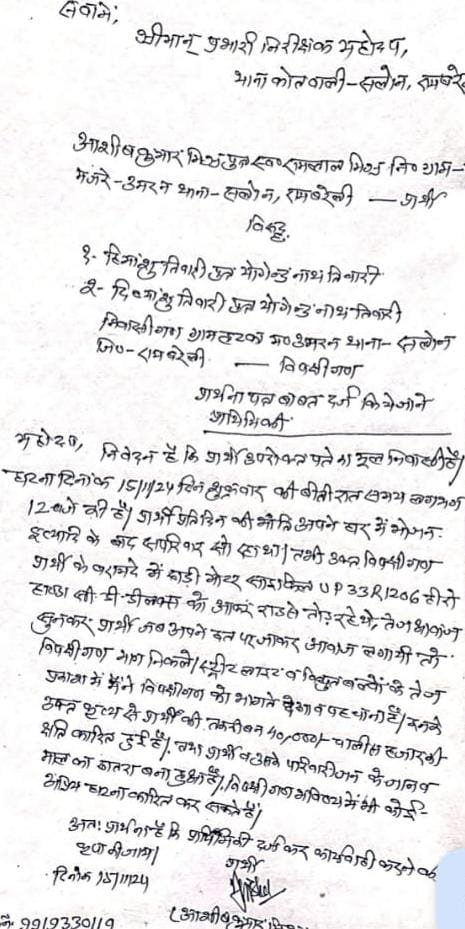 सेवामें,
श्रीमान् प्रभारी निरीक्षक महोदय,
थाना कोतवाली-सलोन, रायबरे
आशीषकुमार मिश्र पुत्र स्व० रामलाल मिश्र नि० ग्राम-
मजरे-उमरन थाना-सलोन, रायबरेली — प्रार्थी
विरुद्ध,
१- हिमांशु तिवारी पुत्र योगेन्द्र नाथ तिवारी
२- दिव्यांशु तिवारी पुत्र योगेन्द्र नाथ तिवारी
निवासीगण ग्राम म० उमरन थाना-सलोन
जि०-रायबरेली — विपक्षीगण
प्रार्थना पत्र बाबत दर्ज किये जाने
प्राथमिकी
महोदय, निवेदन है कि प्रार्थी उपरोक्त पते का मूल निवासी है।
घटना दिनांक 15/11/24 दिन शुक्रवार की बीती रात समय लगभग
12 बजे की है। प्रार्थी प्रतिदिन की भाँति अपने घर में भोजन
इत्यादि के बाद सपरिवार सो रहा था। तभी उक्त विपक्षीगण
प्रार्थी के बरामदे में खड़ी मोटर साइकिल UP33R1206 हीरो
हाण्डा सी.डी.डीलक्स को आकर तोड़ रहे थे, तेज आवाज
सुनकर प्रार्थी जब अपने छत पर जाकर आवाज लगायी तो
विपक्षीगण भाग निकले। स्ट्रीट लाइट व विद्युत बल्बों के तेज
प्रकाश में मैंने विपक्षीगण को भागते देखा व पहचाना है। इनके
उक्त कृत्य से प्रार्थी की तकरीबन 40,000/- चालीस हजार की
क्षति कारित हुई है। तथा प्रार्थी व उसके परिवारीजन के जान व
माल का खतरा बना हुआ है। विपक्षीगण भविष्य में भी कोई-
अप्रिय घटना कारित कर सकते हैं।
अतः प्रार्थना है कि प्राथमिकी दर्ज कर कार्यवाही करने की
कृपा की जाय।
प्रार्थी
दिनांक 15/11/24
(आशीषकुमार
9919330119